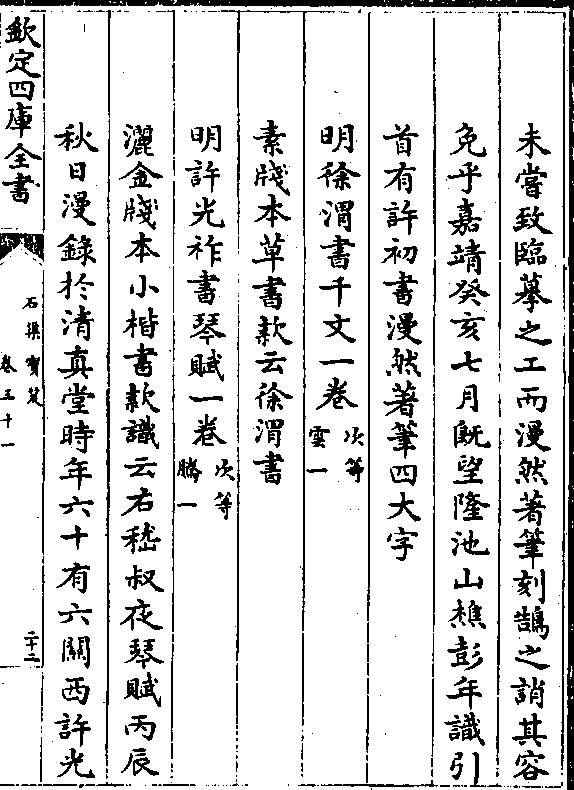 未嘗致臨摹之工而漫然著筆刻鵠之誚其容
免乎嘉靖癸亥七月既望隆池山樵彭年識引
首有許初書漫然著筆四大字
明徐渭書千文一卷 次等 雲一
素牋本草書款云徐渭書
明許光祚書琴賦一卷 次等 騰一
灑金牋本小楷書款識云右嵇叔夜琴賦丙辰
秋日漫錄於清真堂時年六十有六關西許光
欽定四庫全書
石渠寶笈
卷五十一
二十二